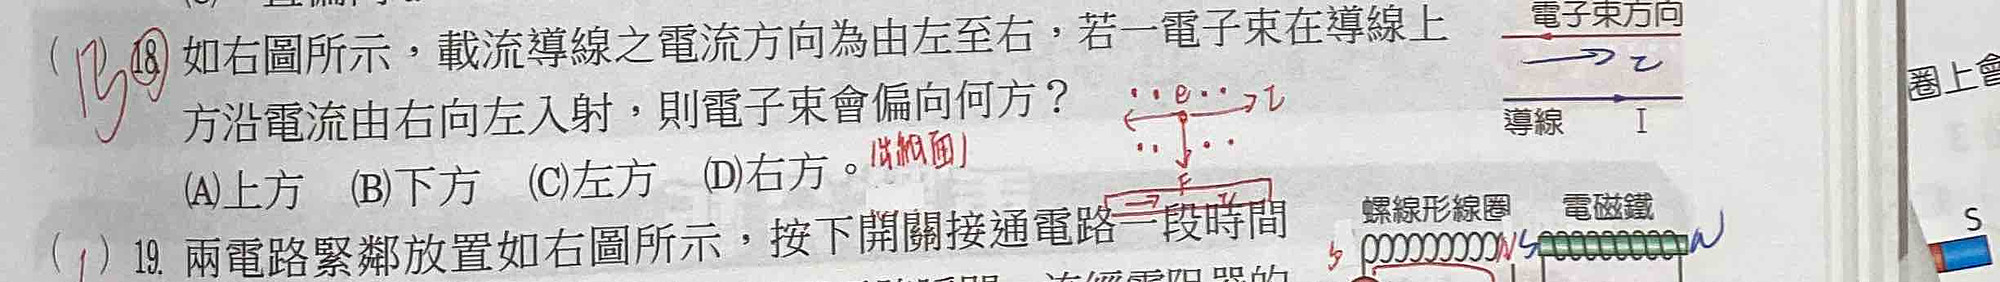 電子束方向
18. 如右圖所示，載流導線之電流方向為由左至右，若一電子束在導線上
方沿電流由右向左入射，則電子束會偏向何方？
(A)上方 (B)下方 (C)左方 (D)右方。
導線 I
e
F
出紙面
圈上會
19. 兩電路緊鄰放置如右圖所示，按下開關接通電路一段時間
螺線形線圈 電磁鐵
S N S N
S